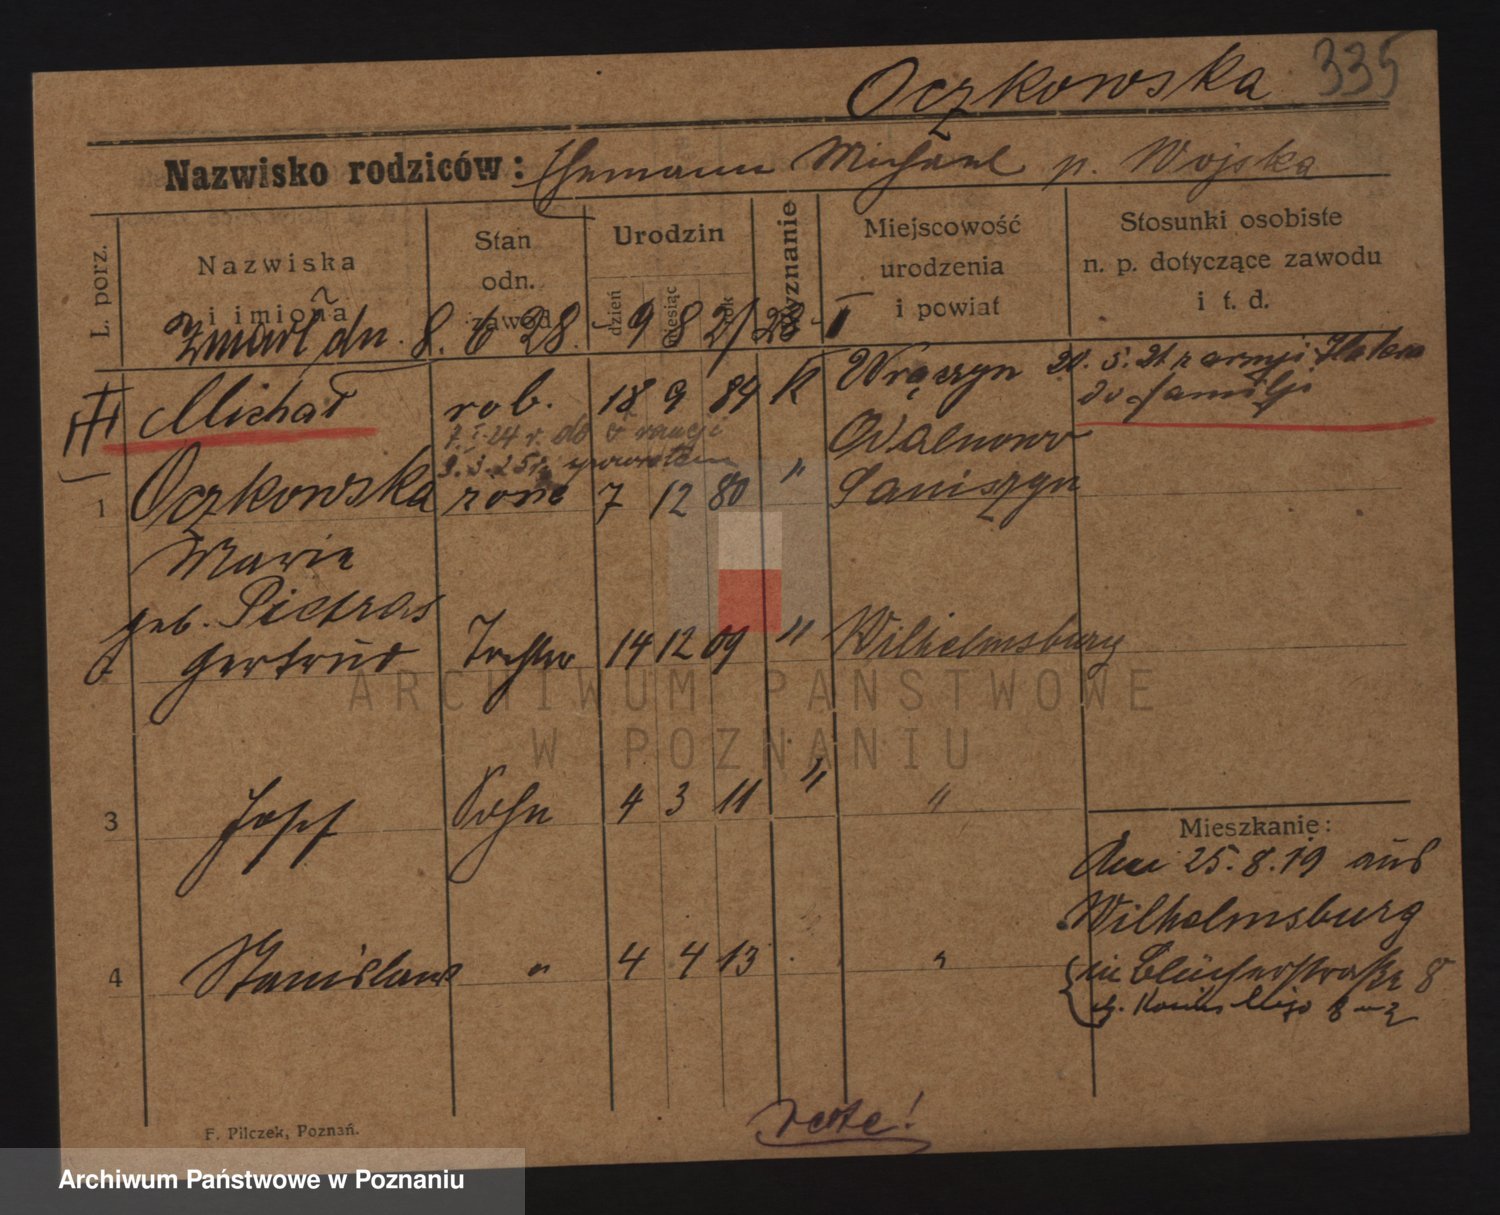 Oczkowska 335
Nazwisko rodziców: Ehemann Michael p. Wojska
L. porz.
Nazwiska
i imiona
Stan
odn.
zawód
Urodzin
dzień
miesiąc
rok
Wyznanie
Miejscowość
urodzenia
i powiat
Stosunki osobiste
n. p. dotyczące zawodu
i t. d.
Zmarł dn. 8. 6 28. - 9 8 2/28 - I
Michał rob. 18 9 84 K Wrączyn 20. 5. 21 z armji
do familji
7. I. 24 r. do Francji
9. 3. 25 r. zpowrotem
1 Oczkowska żona 7 12 80 " Saniszyn
Marie
geb. Pietras
Gertrud Tochter 14 12 09 " Wilhelmsburg
3 Josef Sohn 4 3 11 " "
Mieszkanie:
4 Stanislaus " 4 4 13 "
Am 25. 8. 19 aus
Wilhelmsburg
in Blücherstraße 8
8 m 2
verte!
F. Pilczek, Poznań.
ARCHIWUM PAŃSTWOWE
W POZNANIU
Archiwum Państwowe w Poznaniu